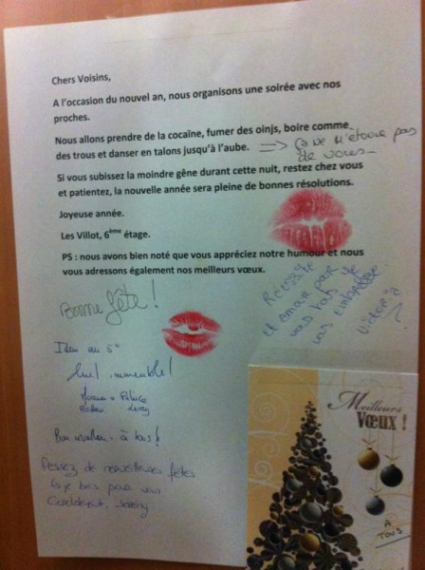 Chers Voisins,
A l'occasion du nouvel an, nous organisons une soirée avec nos
proches.
Nous allons prendre de la cocaïne, fumer des oinjs, boire comme
des trous et danser en talons jusqu'à l'aube.
=> ça ne m'étonne pas
de vous
Si vous subissez la moindre gêne durant cette nuit, restez chez vous
et patientez, la nouvelle année sera pleine de bonnes résolutions.
Joyeuse année.
Les Villot, 6ème étage.
PS : nous avons bien noté que vous appréciez notre humour et nous
vous adressons également nos meilleurs vœux.
Bonne fête !
Réussite
et amour pour
vous tous
vous
Idem au 5e
immeuble !
à tous !
Passez de merveilleuses fêtes
pour vous
Meilleurs
Vœux !
A
TOUS